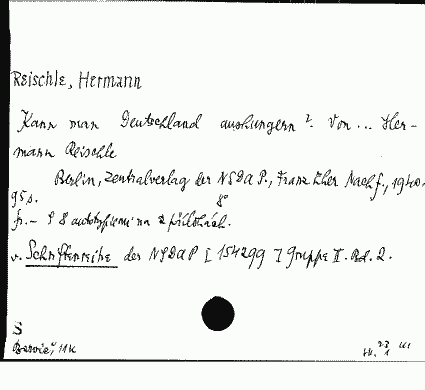 Reischle, Hermann
Kann man Deutschland aushungern?. Von ... Her-
mann Reischle
Berlin, Zentralverlag der NSDAP., Franz Eher Nachf., 1940.
95 s. 8°
fr. - S 8 autotypiemi na 2 přílohách.
v. Schriftenreihe der NSDAP [154299] Gruppe II. Bd. 2.
S